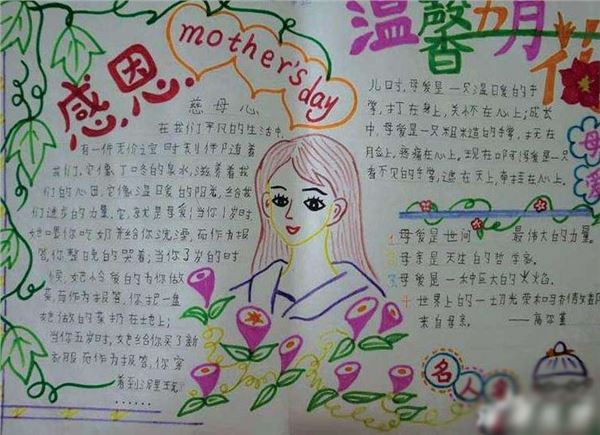 感恩
mother's day
慈母心
在我们平凡的生活中,
有一份无价之宝时刻伴随着
我们,它像丁冬的泉水,滋养着我
们的心田,它像温暖的阳光,给我
们进步的力量,它,就是母爱!当你1岁时
她喂你吃奶并给你洗澡,而作为报
答,你整晚的哭着;当你了3岁的时
候,她怜爱的为你做
菜,而作为报答,你把一盘
她做的菜扔在地上;
当你五岁时,她给你买了新
衣服而作为报答,你穿
着到泥里玩
......
温馨九月花
儿时,母爱是一只温暖的手
掌,打在身上,关怀在心上;成长
中,母爱是一只粗糙的手掌,
脸上,疼痛在心上。现在啊,母爱是一只
看不见的手掌,遮在天上,牵挂在心上。
母爱
1.母爱是世间 最伟大的力量。
2.母亲是天生的哲学家。
3.母爱是一种巨大的火焰。
4.世界上的一切光荣和
来自母亲。 ——高尔基
名人